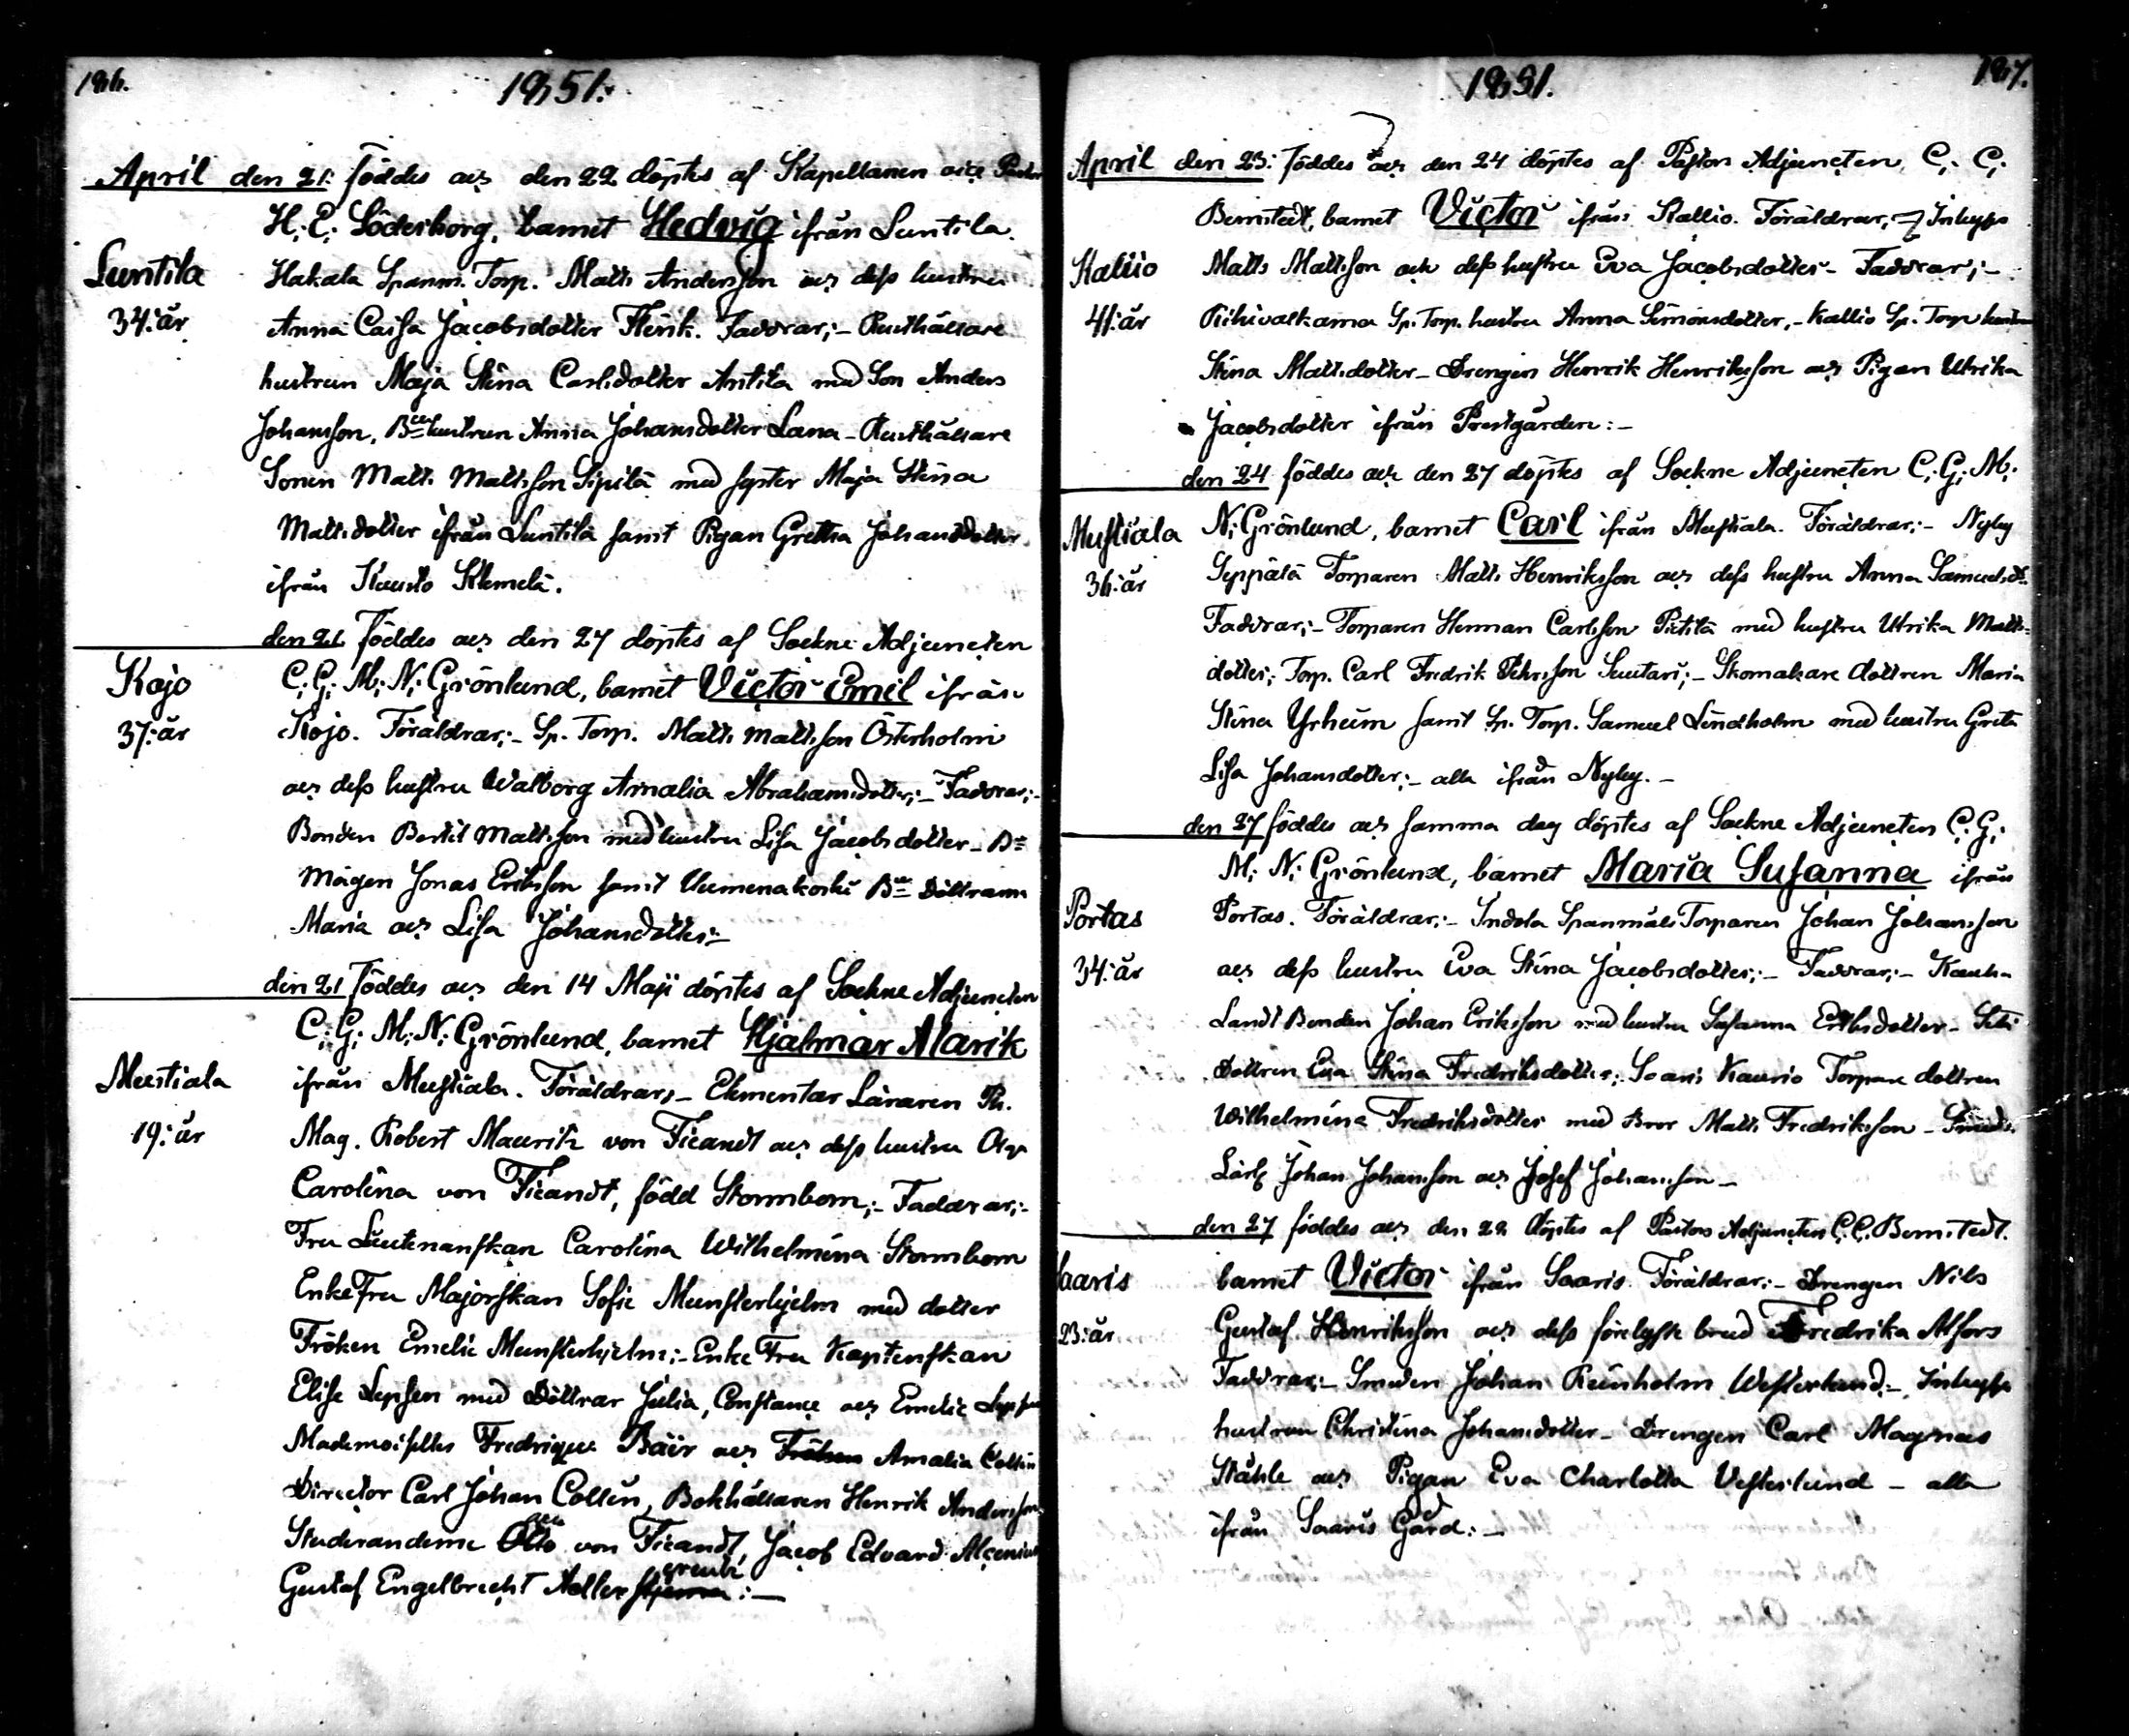 186.
1851.
April den 21. föddes och den 22 döptes af Kapellanen vice Pastor
H: E: Söderborg, barnet Hedvig ifrån Luntila.
Luntila
34: år
Hakala Spanm. Torp. Matts Andersson och dess hustru
Anna Caisa Jacobsdotter Flink. Faddrar;- Rusthållare
hustrun Maja Stina Carlsdotter Antila med Son Anders
Johansson, Bde hustrun Anna Johansdotter Lana - Rusthållare
Sonen Matts Mattsson Sipilä med syster Maja Stina
Mattsdotter ifrån Luntila samt Pigan Gretha Johansdotter
ifrån Kausto Klemelä.
den 21 föddes och den 27 döptes af Sockne Adjuncten
Kojo
37: år
C: G: M: N: Grönlund, barnet Victor Emil ifrån
Kojo. Föräldrar;- Sp. Torp. Matts Mattsson Österholm
och dess hustru Walborg Amalia Abrahamsdotter;- Faddrar;-
Bonden Bertil Mattsson med hustru Lisa Jacobsdotter - Bde
Mågen Jonas Eriksson samt Uumenakoski Bde Döttrarna
Maria och Lisa Johansdotter:-
den 21 föddes och den 14 Maji döptes af Sockne Adjuncten
C: G: M: N: Grönlund, barnet Hjalmar Alarik
Mustiala
19: år
ifrån Mustiala. Föräldrar;- Elementar Läraren Ph.
Mag. Robert Mauritz von Fieandt och dess hustru
Carolina von Fieandt, född Stormbom;- Faddrar;-
Fru Lieutenanskan Carolina Wilhelmina Stormbom
Enke Fru Majorskan Sofie Munsterhjelm med dotter
Fröken Emelie Munsterhjelm;- Enke Fru Kaptenskan
Elise Lepsen med Döttrar Julia, Constance och Emelie Lepsen
Mademoiselles Fredrique Bäer och Fröken Amalia Collin
Director Carl Johan Collin, Bokhållaren Henrik Andersson
Studerandene Otto von Fieandt, Jacob Edvard Alcenius
Gustaf Engelbrecht Adlercreutz:-
187.
1851.
April den 23: föddes och den 24 döptes af Pastors Adjuncten, C: C:
Bernstedt, barnet Victor ifrån Kallio. Föräldrar;- Inhyses
Kallio
41: år
Matts Mattsson och dess hustru Eva Jacobsdotter - Faddrar;-
Riihivalkama Sp. Torp. hustru Anna Simonsdotter, - Kallio Sp. Torp hustru
Stina Mattsdotter - Drengen Henrik Henriksson och Pigan Ulrika
Jacobsdotter ifrån Prestgården:-
den 24 föddes och den 27 döptes af Sockne Adjuncten C: G: M:
Mustiala
36: år
N: Grönlund, barnet Carl ifrån Mustiala. Föräldrar;- Nyby
Seppälä Torparen Matts Henriksson och dess hustru Anna Samuelsdr.
Faddrar;- Torparen Herman Carlsson Pietilä med hustru Ulrika Matts-
dotter; Torp. Carl Fredrik Pehrsson Suutari;- Skomakare dottren Maria
Stina Yrheim samt Sp. Torp. Samuel Lindholm med hustru Greta
Lisa Johansdotter;- alla ifrån Nyby.-
den 27 föddes och samma dag döptes af Sockne Adjuncten C: G:
M: N: Grönlund, barnet Maria Susanna ifrån
Portas
34: år
Portas. Föräldrar;- Indola Spanmåls Torparen Johan Johansson
och dess hustru Eva Stina Jacobsdotter;- Faddrar;-
Landt Bonden Johan Eriksson med hustru Susanna Eriksdotter -
Dottren Eva Stina Fredriksdotter; Saaris Kaurio Torpare dottren
Wilhelmina Fredriksdotter med Bror Matts Fredriksson - Smeds
Lärl. Johan Johansson och Josef Johansson -
den 27 föddes och den 28 döptes af Pastors Adjuncten C. C. Bernstedt.
Saaris
23: år
barnet Victor ifrån Saaris. Föräldrar:- Drengen Nils
Gustaf Henriksson och dess förelofste brud Fredrika Alfors
Faddrar:- Smeden Johan Reinholm Westerlund:-, Inhyses
hustrun Christina Johansdotter - Drengen Carl Magnus
Ståhle och Pigan Eva Charlotta Vesterlund - alla
ifrån Saaris Gård:-